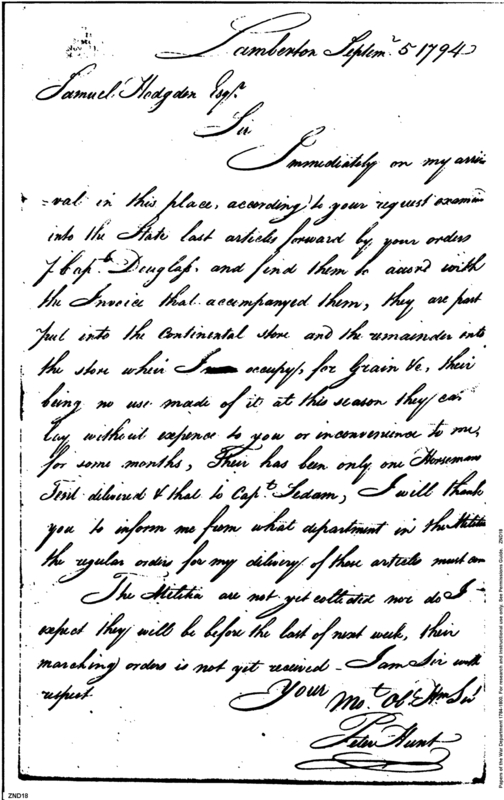 Lamberton Septemr. 5 1794
Samuel Hodgdon Esqr.
Sir
Immediately on my arri
=val in this place, according to your request examin
into the State last articles forward by your orders
Capt. Douglass, and find them to acord with
the Invoice that accompanyed them, they are part
put into the Continental store and the remainder into
the store wheir I occupy, for Grain &c, their
being no use made of it at this season they can
lay without expence to you or inconvenience to me,
for some months, Their has been only one Horsemans
Tent delivered & that to Capt. Sedam, I will thank
you to inform me from what department in the Militia
the regular orders for my delivery of those articles must com
The Militia are not yet collected nor do I
expect they will be before the last of next week, their
marching orders is not yet received - I am Sir with
respect Your Mot. Obt. Hm Sert
Peter Hunt
ZND18
Papers of the War Department 1784-1800. For research and instructional use only. See Permissions Guide. ZND18